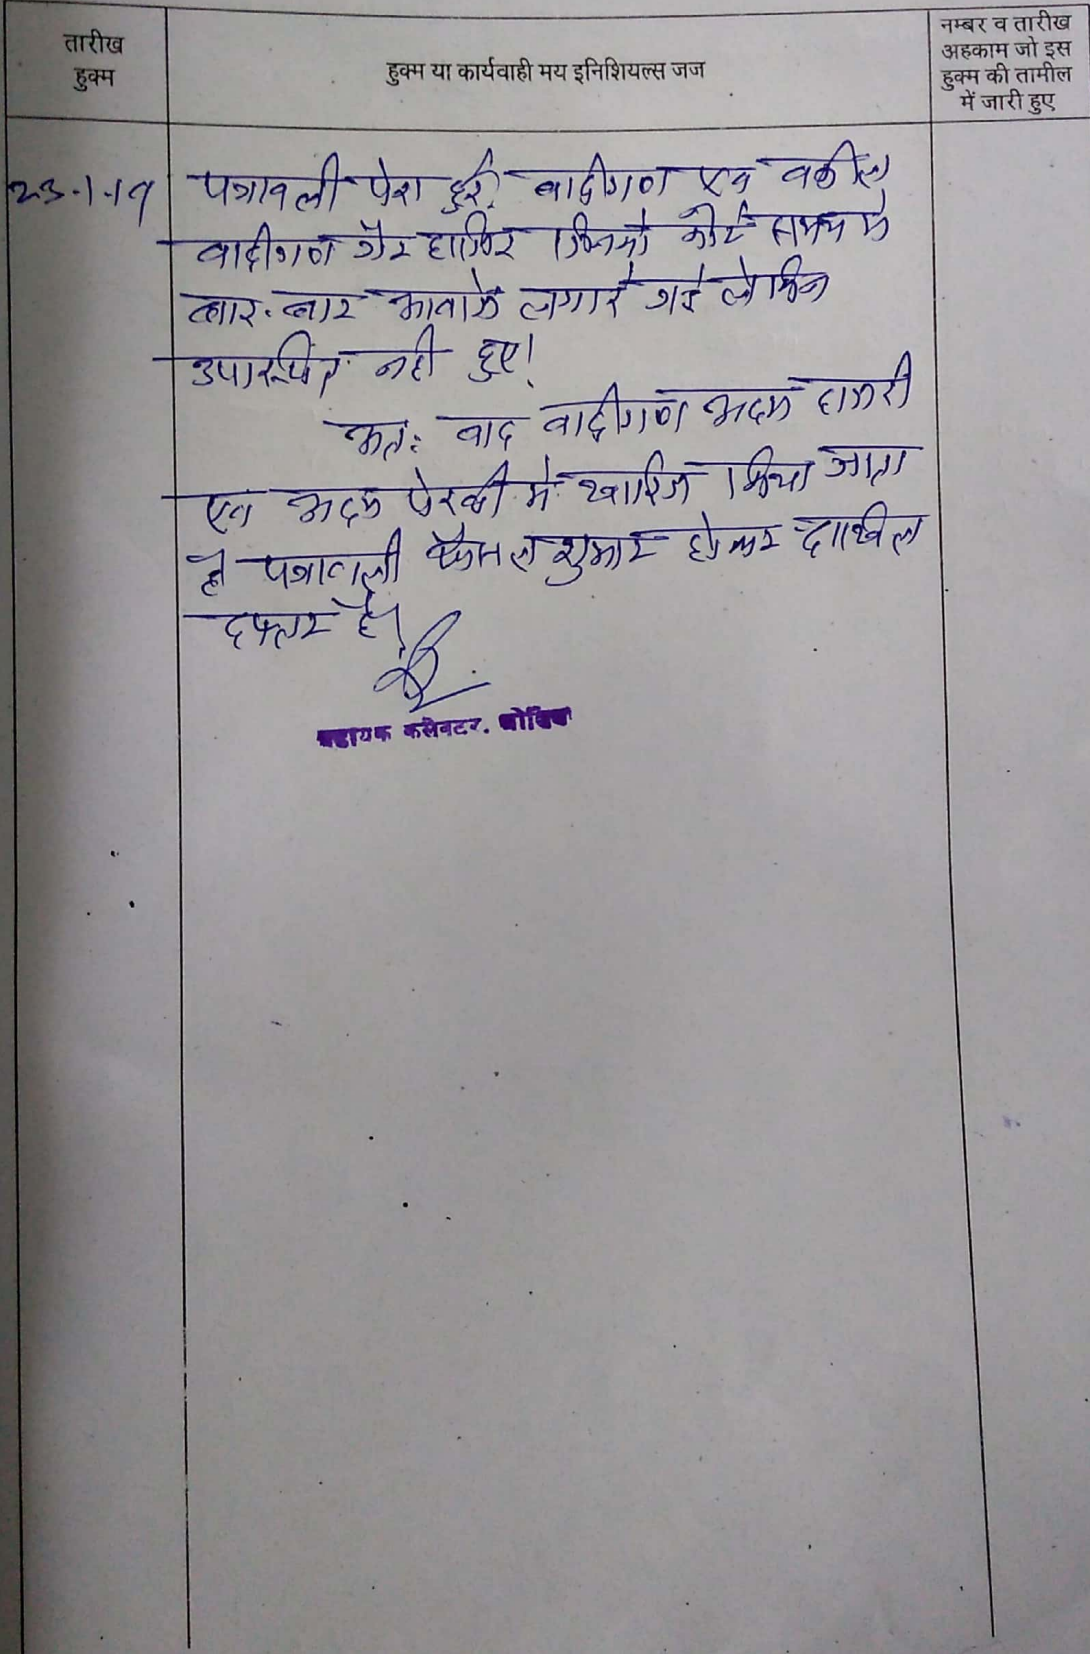 तारीख
हुक्म
हुक्म या कार्यवाही मय इनिशियल्स जज
नम्बर व तारीख
अहकाम जो इस
हुक्म की तामील
में जारी हुए
23-1-19
पत्रावली पेश हुई। वादीगण एव वकील
वादीगण गैर हाजिर जिनको कोर्ट समय मे
बार-बार आवाजे लगाई गई लेकिन
उपस्थित नही हुए।
अतः वाद वादीगण अदम हाजरी
एव अदम पेरवी मे खारिज किया जाता
है पत्रावली फैसल शुमार होकर दाखिल
दफ्तर हो।
सहायक कलेक्टर.